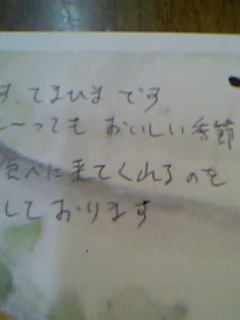 す てまひま です
と〜っても おいしい季節
食べに来てくれるのを
しております